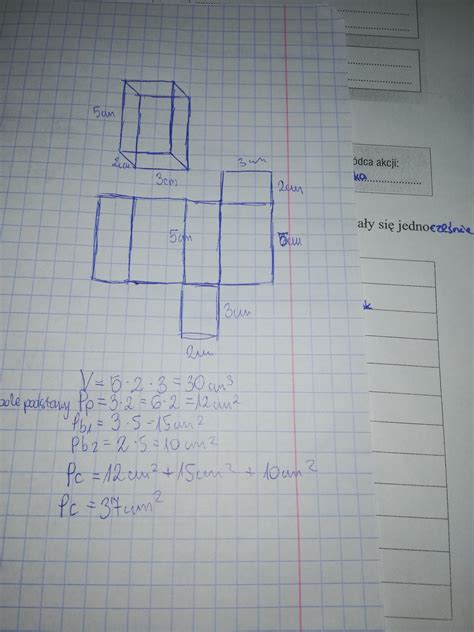 5cm
2cm
3cm
3cm
2cm
5cm
5cm
3cm
2cm
V = 5 · 2 · 3 = 30 cm³
pole podstawy Pp = 3 · 2 = 6 · 2 = 12 cm²
Pb₁ = 3 · 5 = 15 cm²
Pb₂ = 2 · 5 = 10 cm²
Pc = 12 cm² + 15 cm² + 10 cm²
Pc = 37 cm²
ódca akcji:
ka
ały się jednocześnie
k